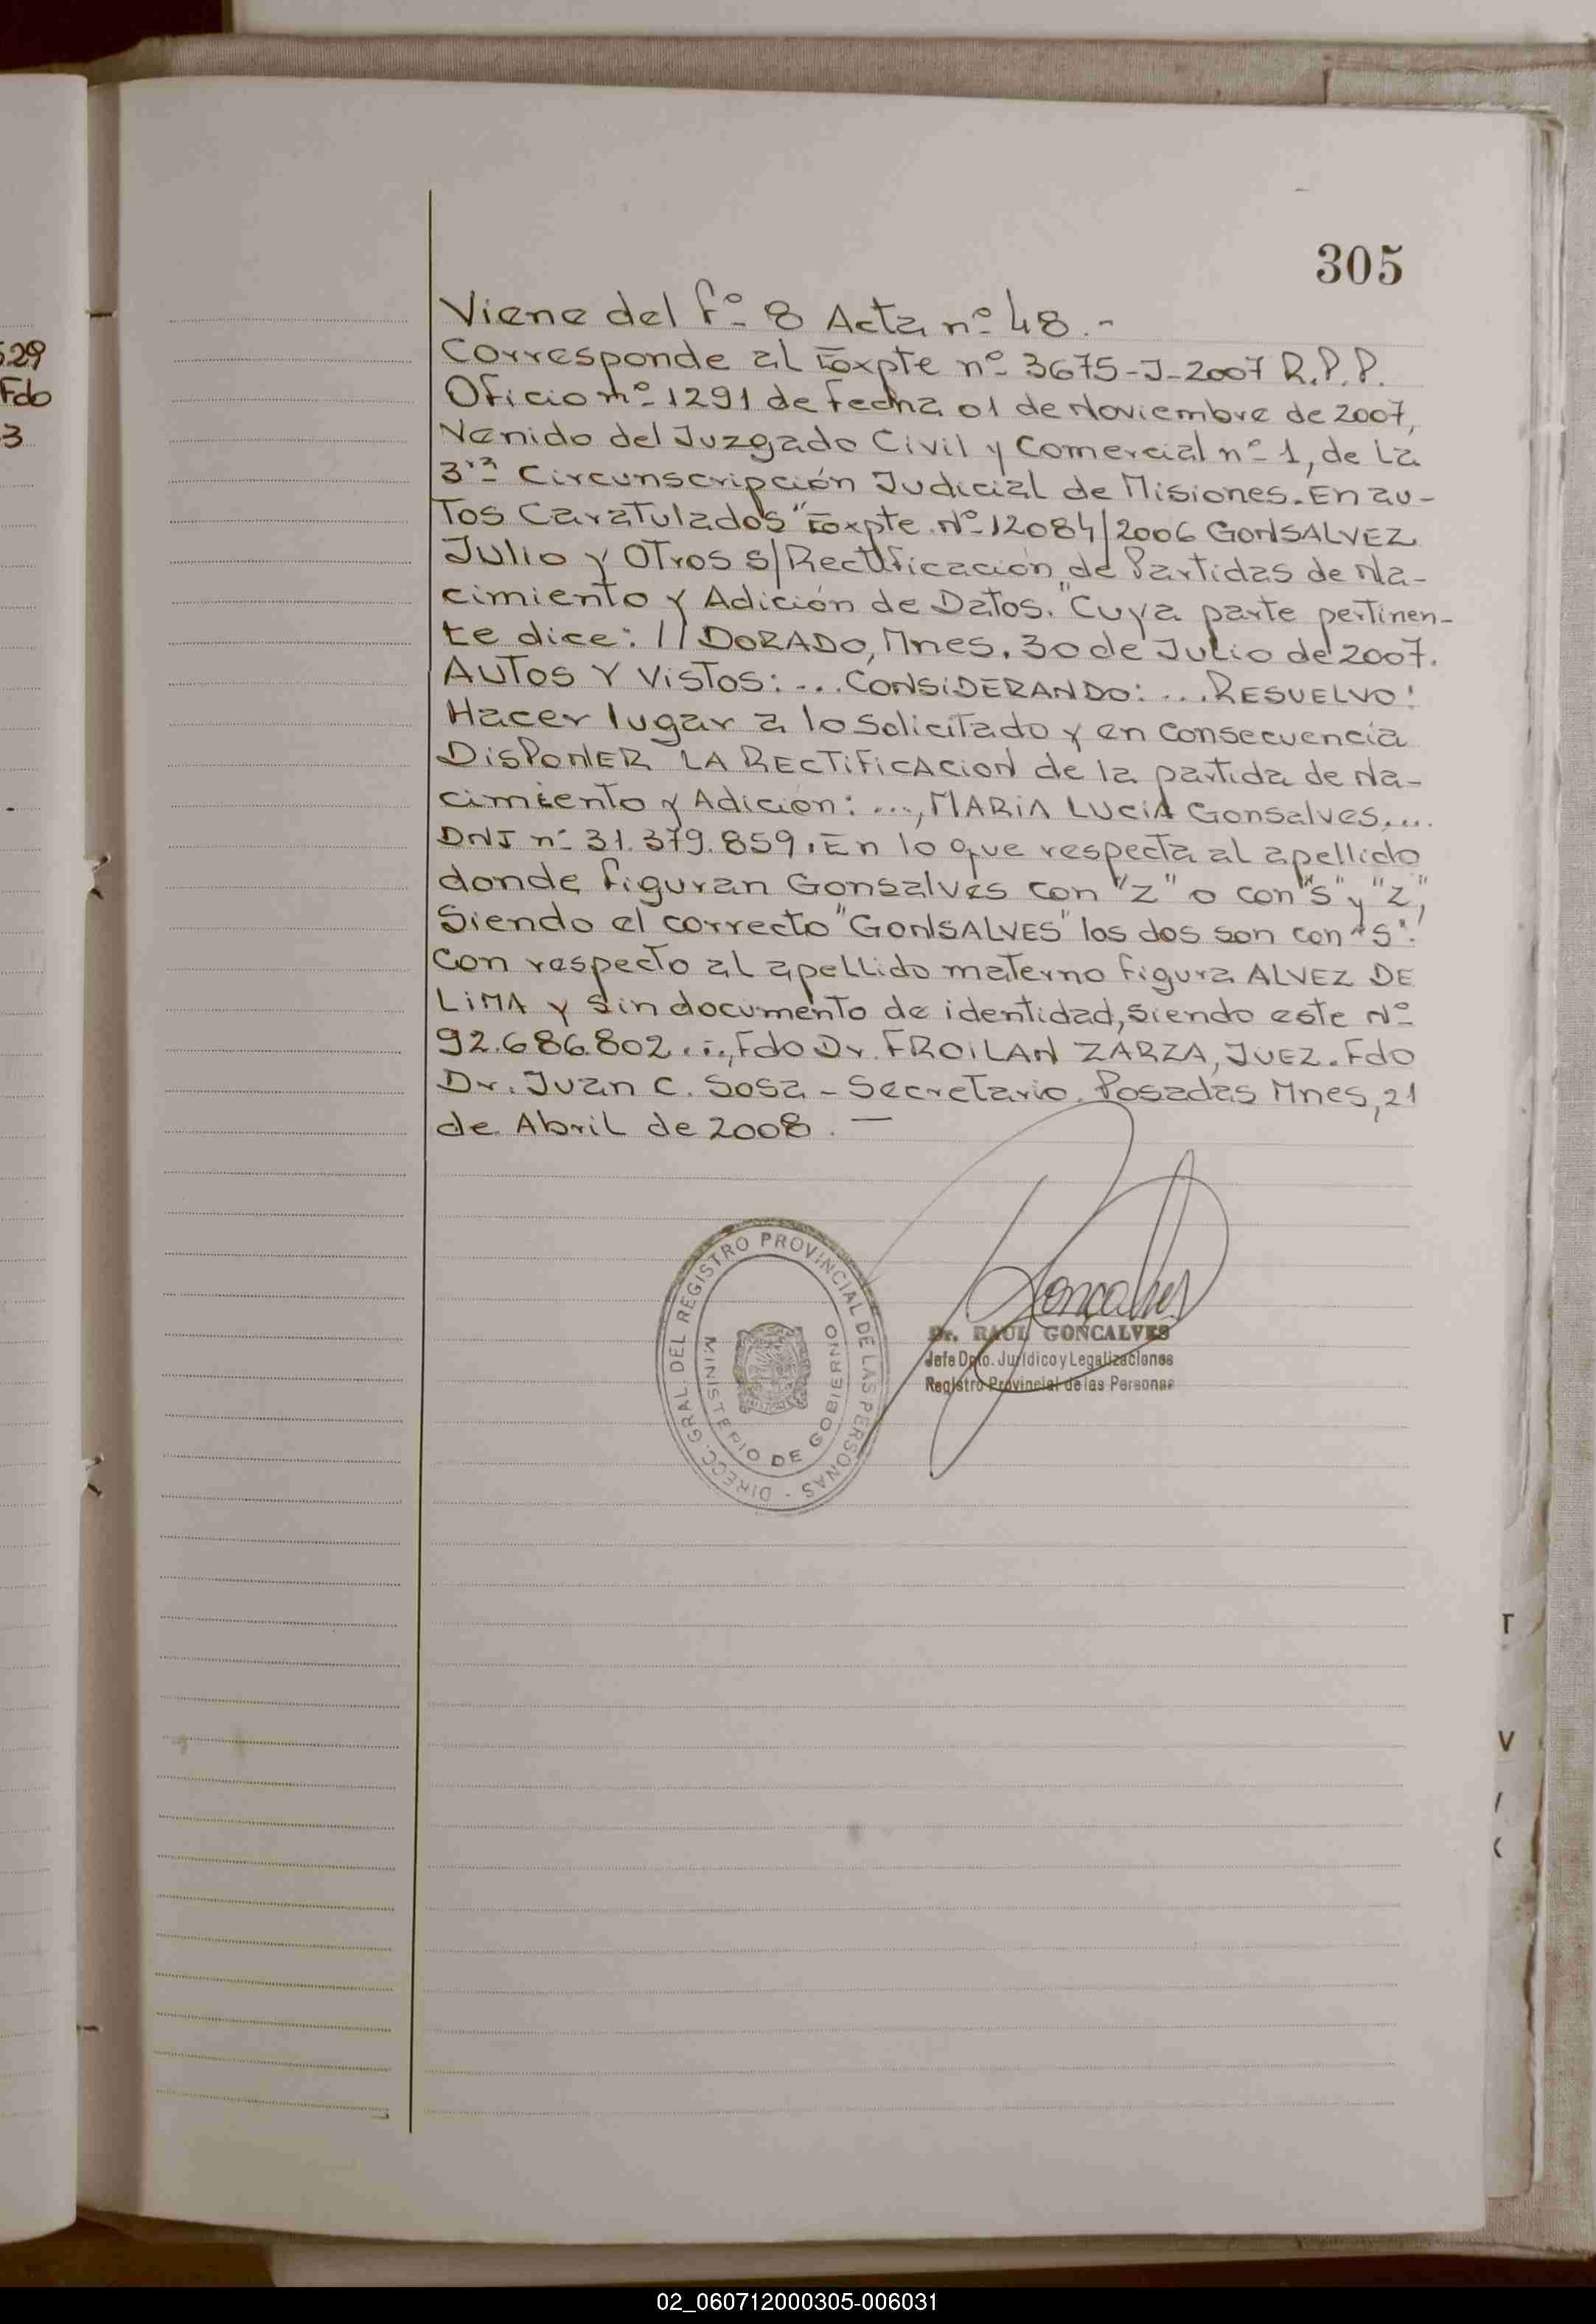 305
Viene del fº 8 Acta nº 48.-
Corresponde al Expte nº 3675-J-2007 R.P.P.
Oficio nº 1291 de fecha 01 de Noviembre de 2007,
Venido del Juzgado Civil y Comercial nº 1, de La
3ra Circunscripción Judicial de Misiones. En au-
Tos Caratulados "Expte. Nº 12084/2006 GONSALVEZ
Julio y Otros s/Rectificación de Partidas de Na-
cimiento y Adición de Datos." Cuya parte pertinen-
te dice: //DORADO, Mnes. 30 de Julio de 2007.
AUTOS Y VISTOS: ... CONSIDERANDO: ... RESUELVO:
Hacer lugar a lo solicitado y en consecuencia
DISPONER LA RECTIFICACION de la partida de Na-
cimiento y Adición: ..., MARIA LUCIA Gonsalves, ...
DNI nº 31.379.859. En lo que respecta al apellido
donde figuran Gonsalves con "z" o con "s" y "z",
Siendo el correcto "GONSALVES" los dos son con "S".
Con respecto al apellido materno figura ALVEZ DE
LIMA y sin documento de identidad, siendo este Nº
92.686.802 ..., Fdo Dr. FROILAN ZARZA, JUEZ. Fdo
Dr. Juan C. Sosa - Secretario. Posadas Mnes, 21
de Abril de 2008. —
DIRECC. GRAL. DEL REGISTRO PROVINCIAL DE LAS PERSONAS -
MINISTERIO DE GOBIERNO
Goncalves
Dr. RAUL GONCALVES
Jefe Dpto. Jurídico y Legalizaciones
Registro Provincial de las Personas
29
Fdo
3
T
V
02_060712000305-006031